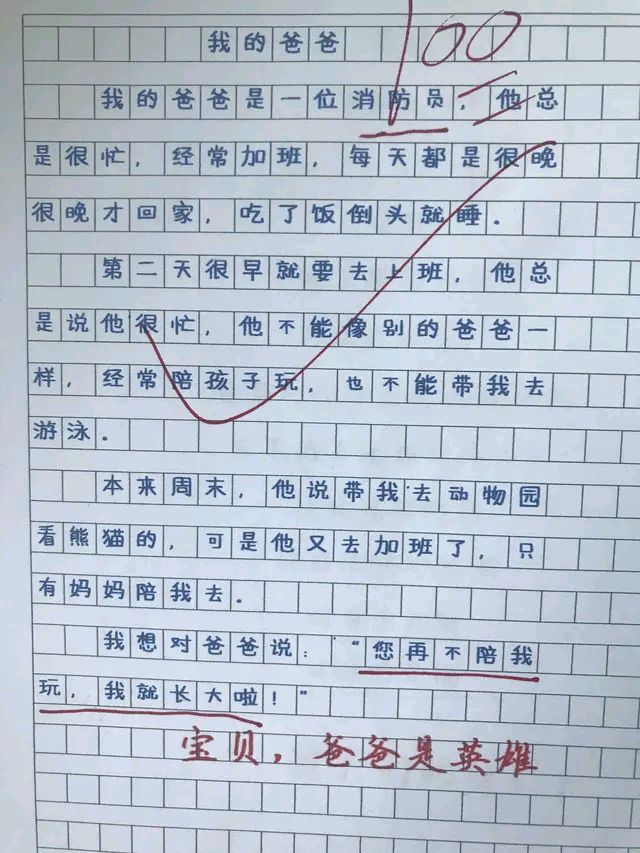 我的爸爸
100
我的爸爸是一位消防员，他总
是很忙，经常加班，每天都是很晚
很晚才回家，吃了饭倒头就睡．
第二天很早就要去上班，他总
是说他很忙，他不能像别的爸爸一
样，经常陪孩子玩，也不能带我去
游泳．
本来周末，他说带我去动物园
看熊猫的，可是他又去加班了，只
有妈妈陪我去．
我想对爸爸说：“您再不陪我
玩，我就长大啦！”
宝贝，爸爸是英雄